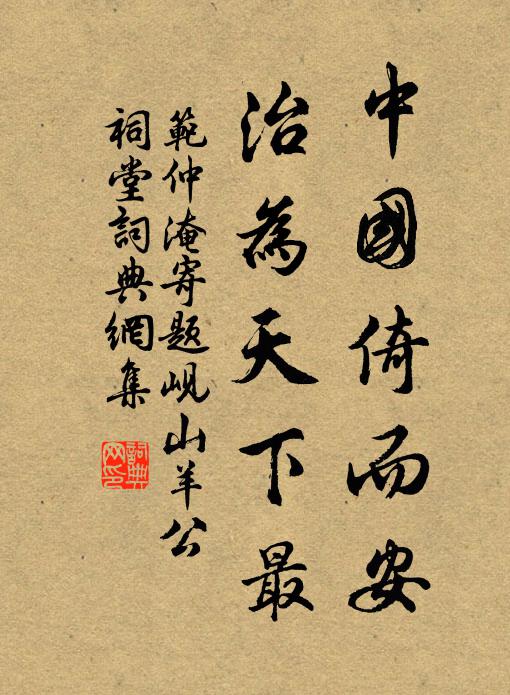 中國倚而安
治為天下最
範仲淹寄題峴山羊公
祠堂詞典網集
詞典網印